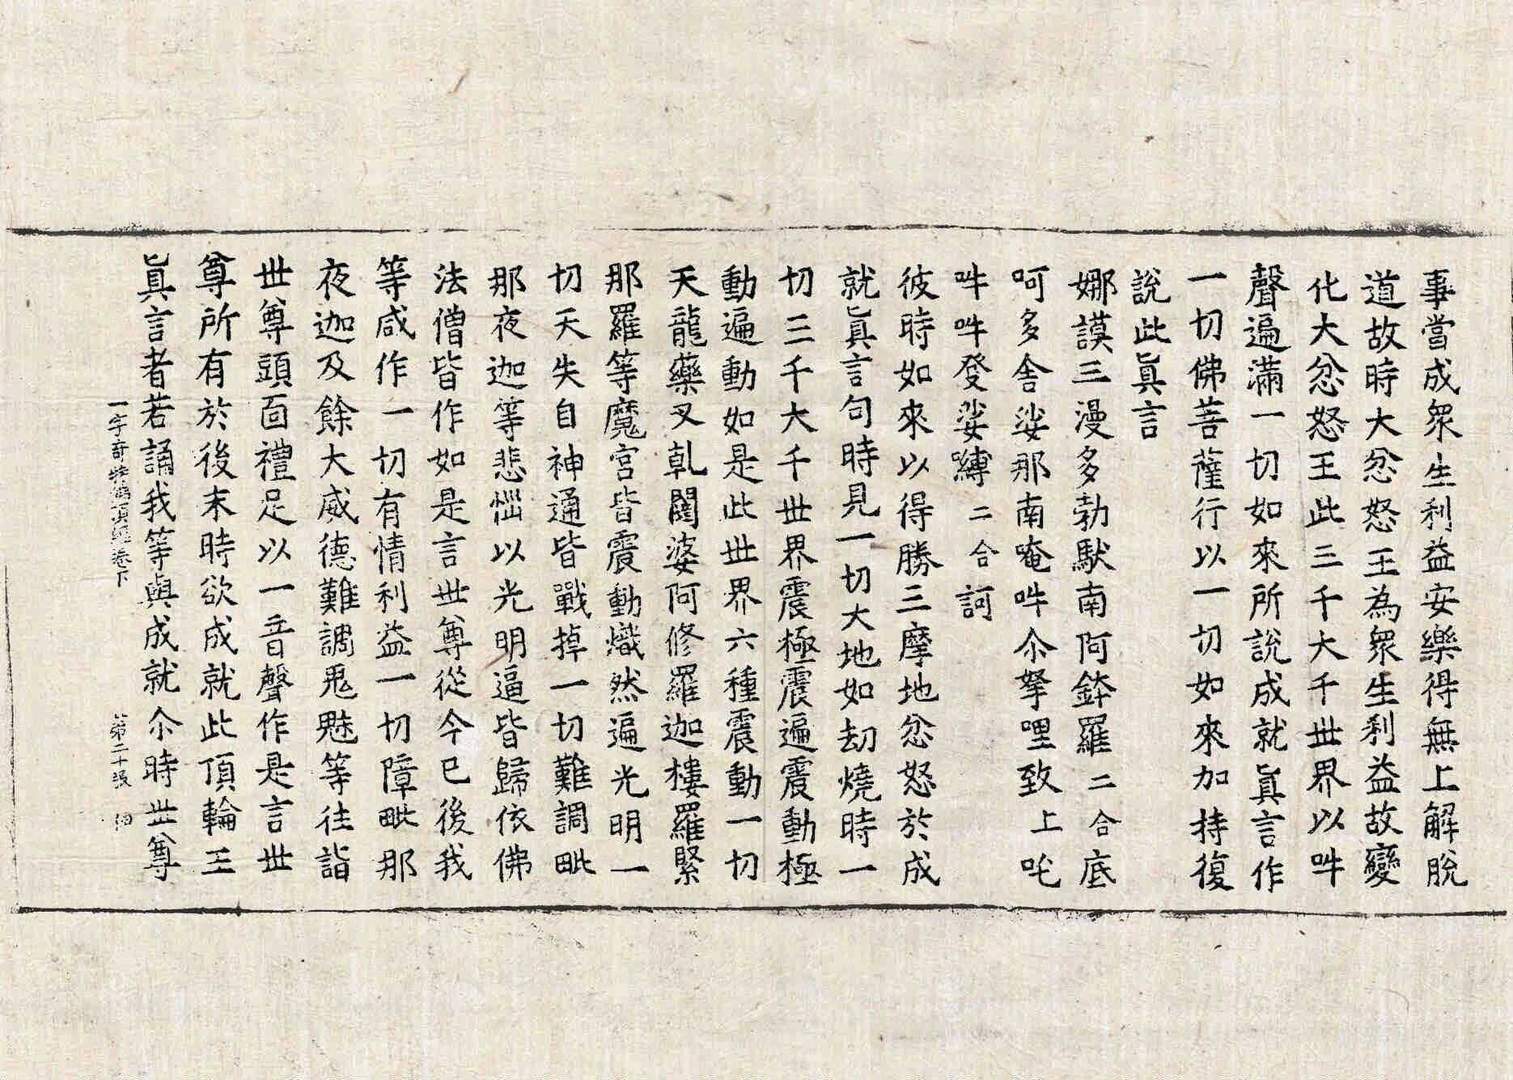 事當成衆生利益安樂得無上解脫
道故時大忿怒王為衆生利益故變
化大忿怒王此三千大千世界以吽
聲遍滿一切如來所說成就眞言作
一切佛菩薩行以一切如來加持復
說此眞言
娜謨三漫多勃馱南阿鉢羅二合底
呵多舍娑那南唵吽尒拏哩致上吒
吽吽發娑嚩二合訶
彼時如來以得勝三摩地忿怒於成
就眞言句時見一切大地如劫燒時一
切三千大千世界震極震遍震動極
動遍動如是此世界六種震動一切
天龍藥叉乹闥婆阿修羅迦樓羅緊
那羅等魔宮皆震動熾然遍光明一
切天失自神通皆戰掉一切難調毗
那夜迦等悲惱以光明逼皆歸依佛
法僧皆作如是言世尊從今已後我
等咸作一切有情利益一切障毗那
夜迦及餘大威德難調鬼魅等往詣
世尊頭面禮足以一音聲作是言世
尊所有於後末時欲成就此頂輪王
眞言者若誦我等與成就尒時世尊
一字奇特佛頂經卷下 第二十張